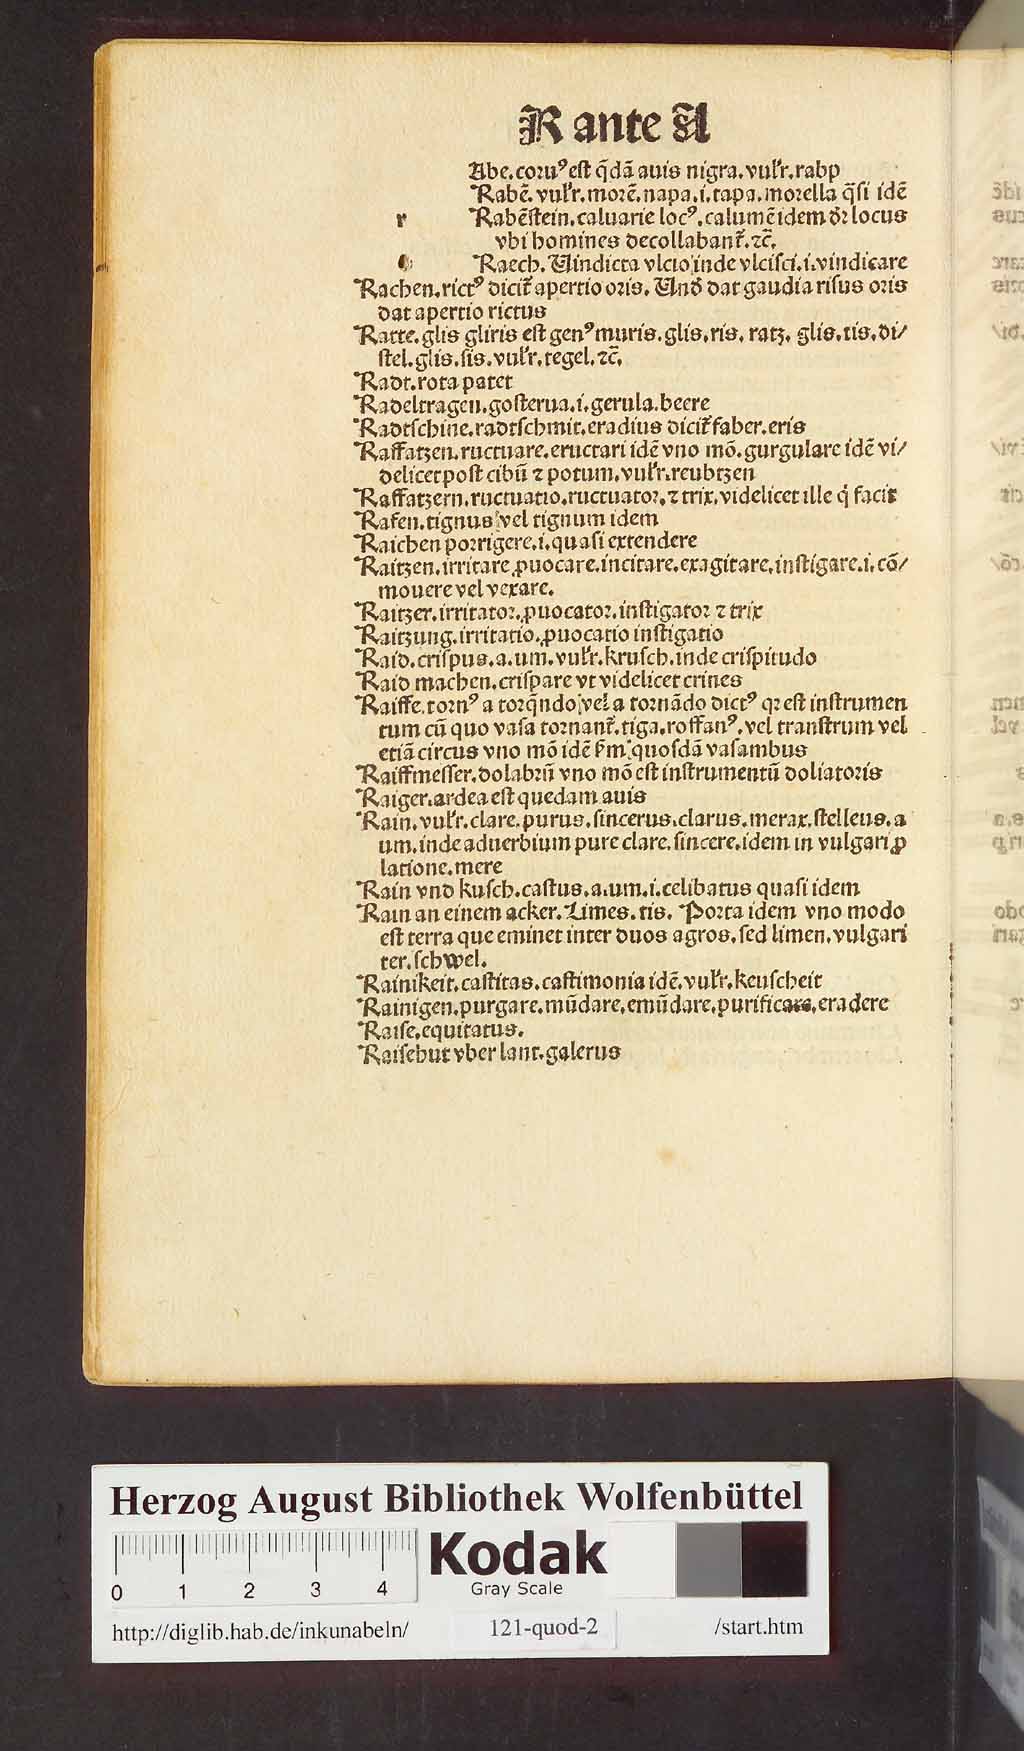 R ante A
Abe. coruꝰ eſt q̄dā auis nigra. vulr̄. rabp
Rabē. vulr̄. morē. napa. i. rapa. morella q̄ſi idē
r Rabēſtein. caluarie locꝰ. calumē idem dr̄ locus
vbi homines decollabant̄. ꝛc̄.
Raech. Vindicta vlcio inde vlciſci. i. vindicare
Rachen. rictꝰ dicit̄ apertio oris. Vnd̄ dat gaudia riſus oris
dat apertio rictus
Ratte. glis gliris eſt genꝰ muris. glis. ris. ratz. glis. tis. di/
ſtel. glis. ſis. vulr̄. tegel. ꝛc̄.
Radt. rota patet
Radeltragen. goſterua. i. gerula. beere
Radtſchine. radtſchmit. eradius dicit̄ faber. eris
Raffatzen. ructuare. eructari idē vno mō. gurgulare idē vi/
delicet poſt cibū ⁊ potum. vulr̄. reubtzen
Raffatzern. ructuatio. ructuator. ⁊ trix. videlicet ille q̇ facit
Rafen. tignus vel tignum idem
Raichen porrigere. i. quaſi extendere
Raitzen. irritare ꝓuocare. incitare. exagitare. inſtigare. i. cō/
mouere vel vexare.
Raitzer. irritator. ꝓuocator. inſtigator ⁊ trix
Raitzung. irritatio. ꝓuocatio inſtigatio
Raid. criſpus. a. um. vulr̄. kruſch. inde criſpitudo
Raid machen. criſpare vt videlicet crines
Raiffe. tornꝰ a torq̄ndo vel a tornādo dictꝰ qꝛ eſt inſtrumen
tum cū quo vaſa tornant̄. tiga. roffanꝰ. vel tranſtrum vel
etiā circus vno mō idē ẜm quoſdā vaſambus
Raiffmeſſer. dolabrū vno mō eſt inſtrumentū doliatoris
Raiger. ardea eſt quedam auis
Rain. vulr̄. clare. purus. ſincerus. clarus. merax. ſtelleus. a
um. inde aduerbium pure clare. ſincere. idem in vulgari ꝓ
latione. mere
Rain vnd kuſch. caſtus. a. um. i. celibatus quaſi idem
Rain an einem acker. Limes. tis. Porta idem vno modo
eſt terra que eminet inter duos agros. ſed limen. vulgari
ter. ſchwel.
Rainikeit. caſtitas. caſtimonia idē. vulr̄. keuſcheit
Rainigen. purgare. mūdare. emūdare. purificare. eradere
Raiſe. equitatus.
Raiſehut vber lant. galerus
Herzog August Bibliothek Wolfenbüttel
0 1 2 3 4
Kodak
Gray Scale
http://diglib.hab.de/inkunabeln/ 121-quod-2 /start.htm